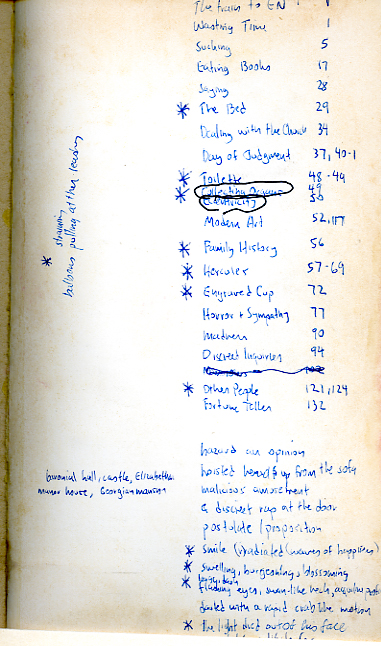 The train to EN 1
Wasting Time 1
Sucking 5
Eating Books 17
Saying 28
* The Bed 29
Dealing with the Church 34
Day of Judgment 37, 40-1
* Toilette 48-49
* Collecting 49
Eccentricity 50
Modern Art 52, 117
* Family History 56
* Hercules 57-69
* Engraved Cup 72
Horror + Sympathy 77
Madness 90
Discreet Inquiries 94
* Other People 121, 124
Fortune Teller 132
* straining
balloons pulling at their leashes
baronial hall, castle, Elizabethan
manor house, Georgian mansion
hazard an opinion
hoisted herself up from the sofa
malicious amusement
a discreet rap at the door
postulate / proposition
* smile (radiated (waves of happiness)
* swelling, burgeoning, blossoming
* flashing eyes, swan-like neck, aquiline
darted with a rapid crab like motion
* The light died out of his face